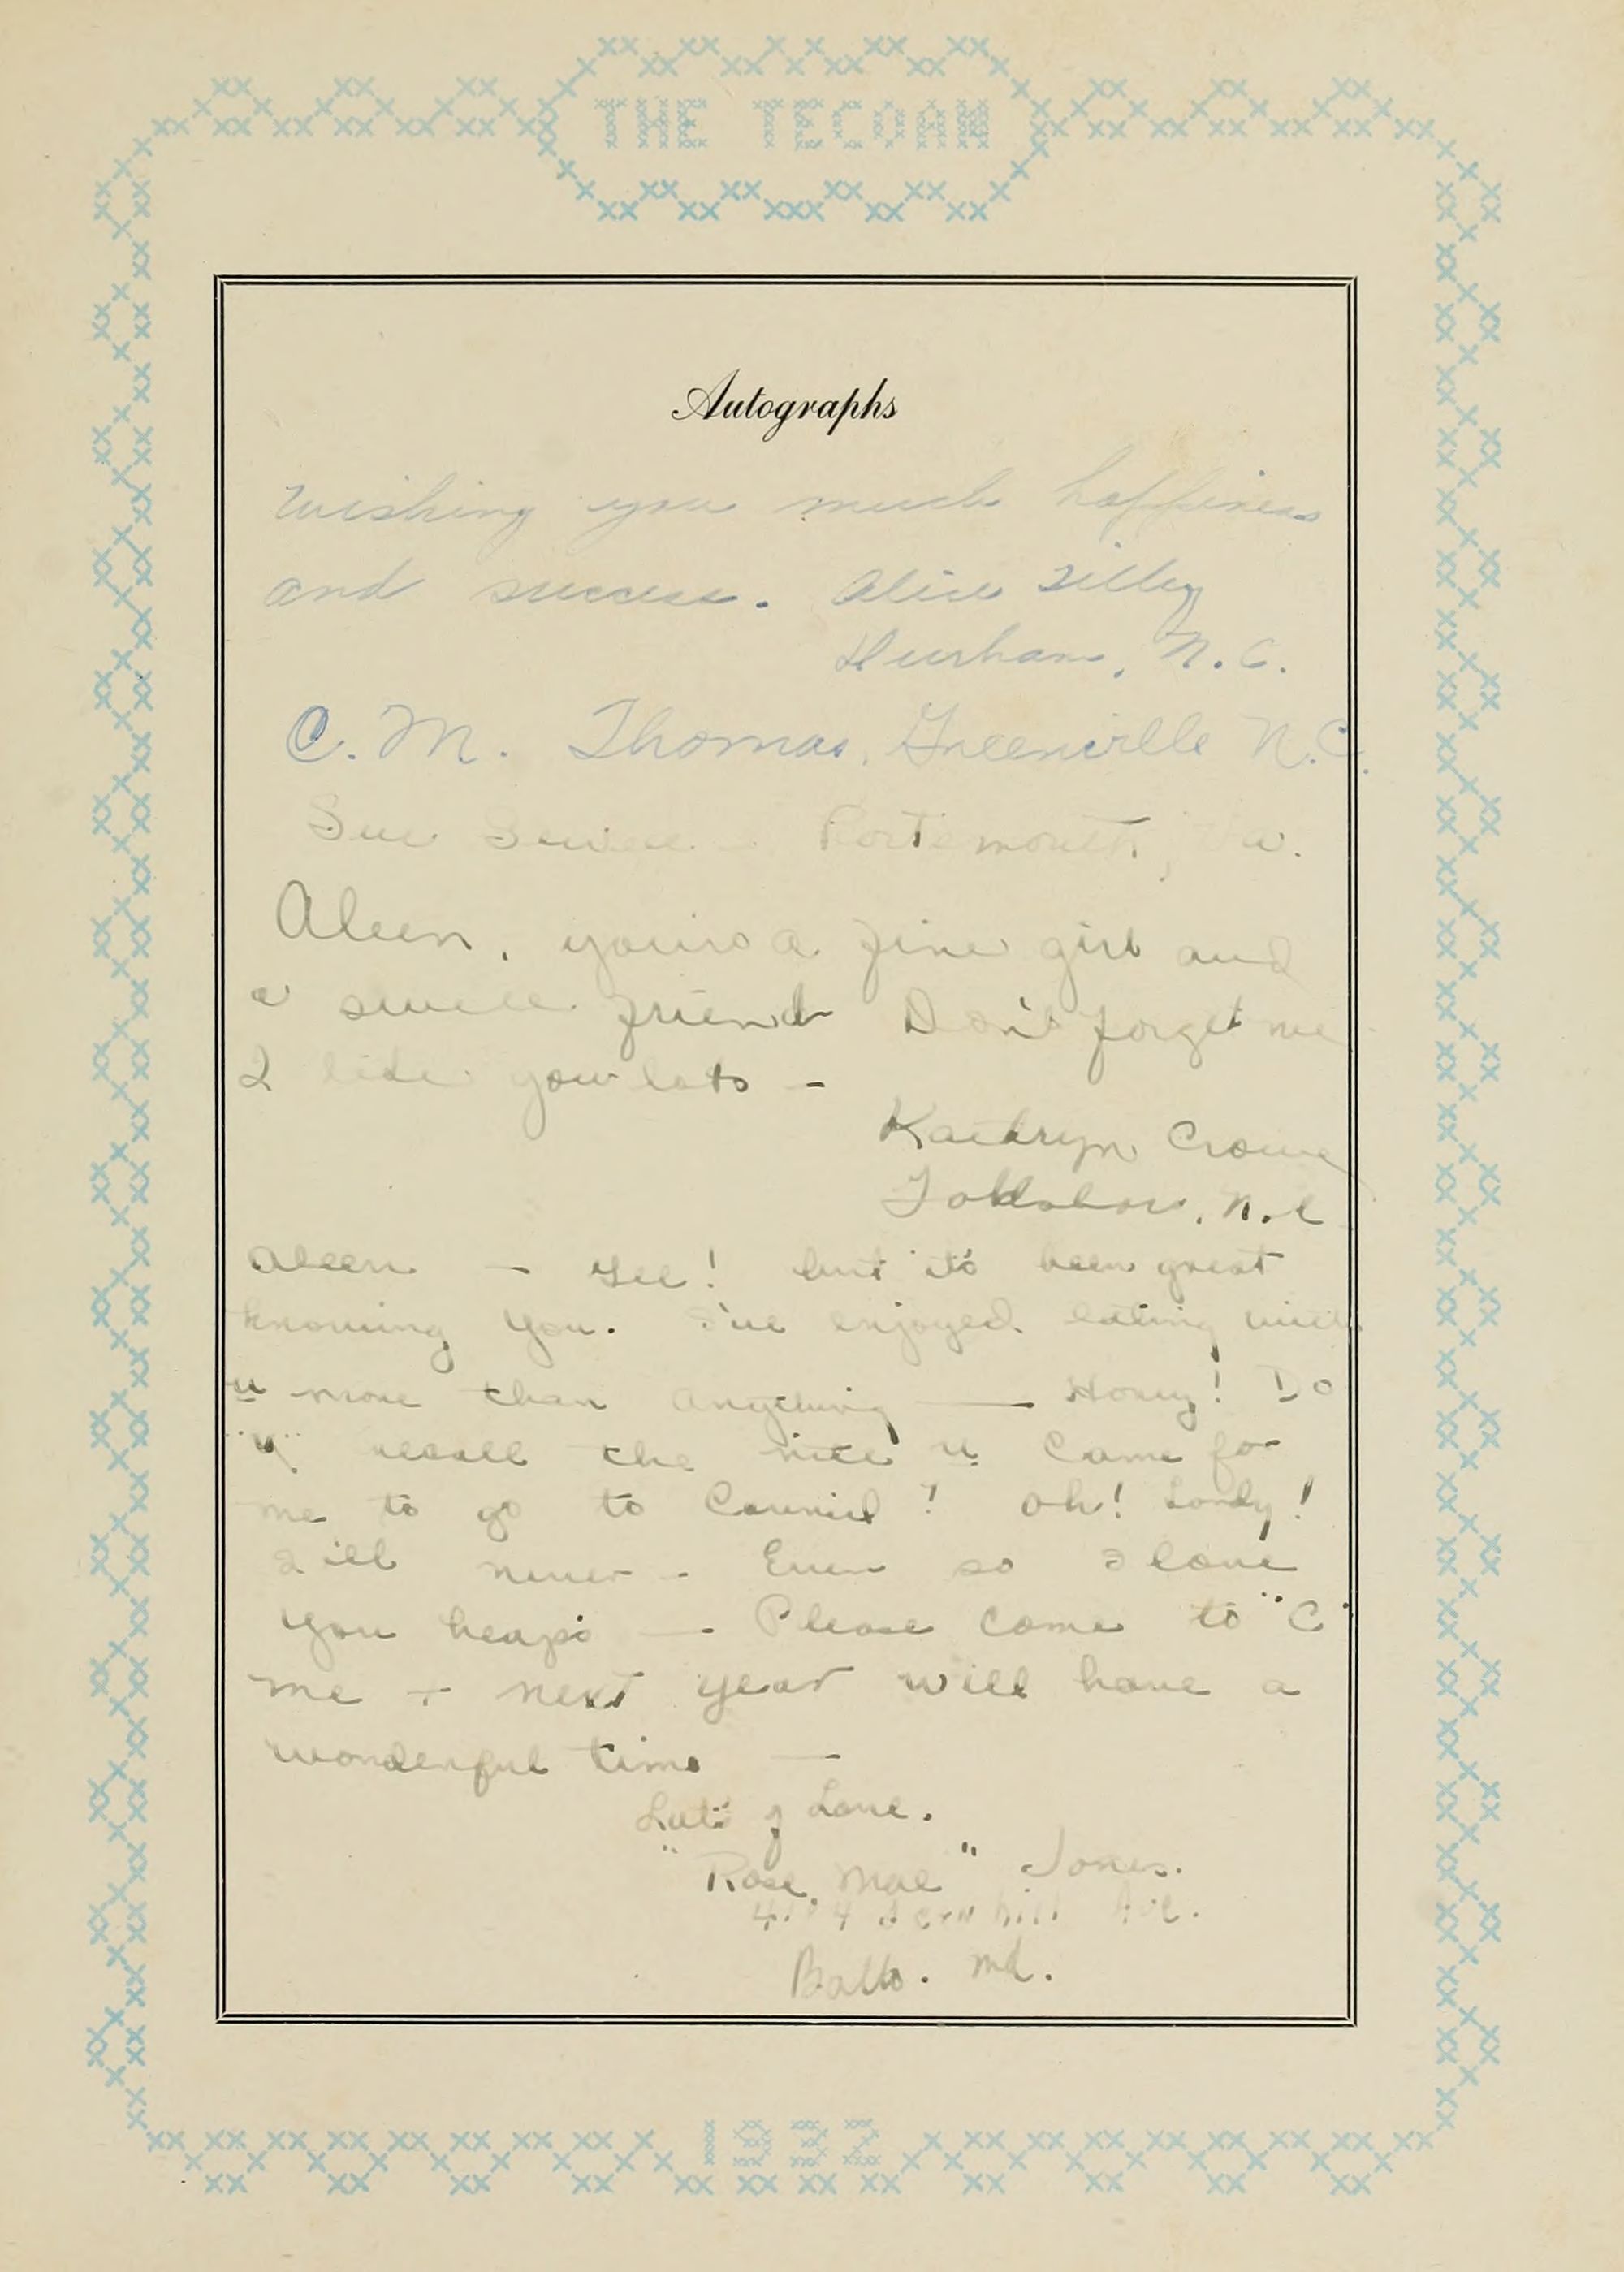 THE TECOAN
Autographs
Wishing you much happiness
and success. Alice Tilley
Durham, N. C.
C. M. Thomas, Greenville N.C.
Sue Portsmouth, Va.
Aleen, your's a fine girl and
a swell friend Don't forget me
I like you lots -
Kathryn Crowe
N.C
Aleen - Gee! but it's been great
knowing you. I've enjoyed eating with
u more than anything — Honey! Do
"u" recall the nite u came for
me to go to Council? Oh! Lordy!
I'll never - Even so I love
you heaps — Please come to "C"
me + next year will have a
wonderful time —
Lots of Love.
"Rose Mae" Jones.
Ave.
Balto. Md.
1932